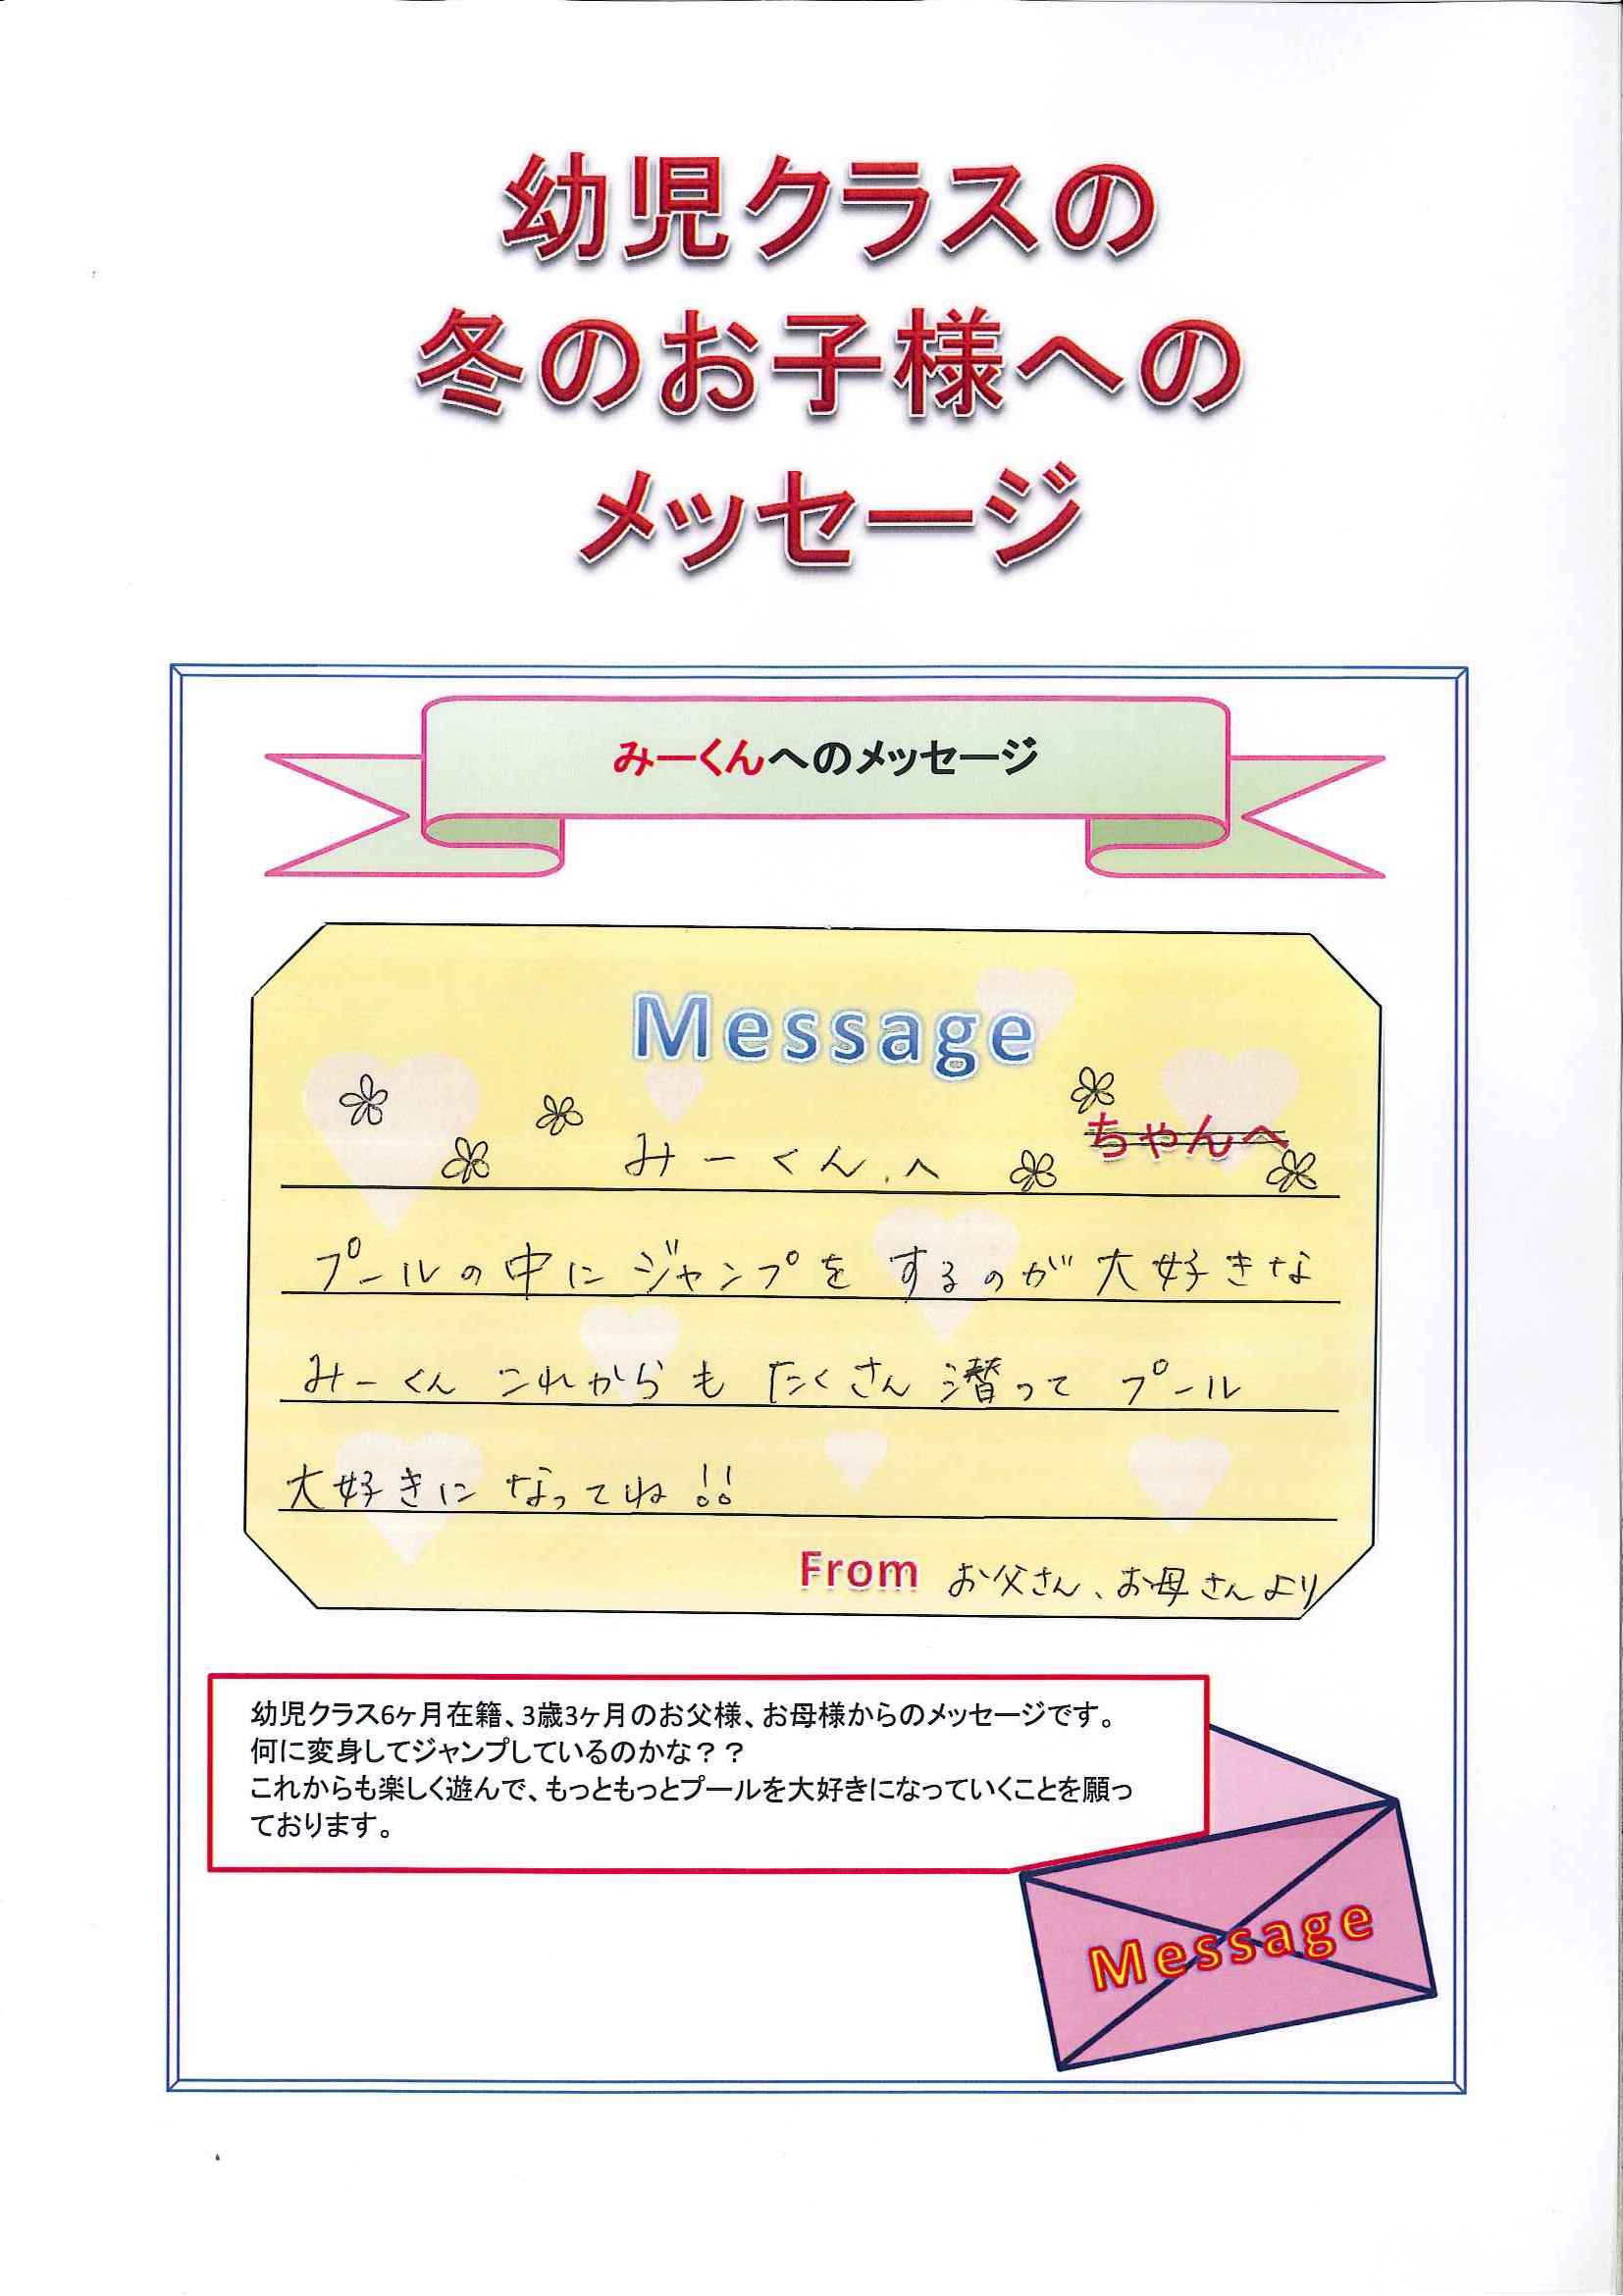 幼児クラスの
冬のお子様への
メッセージ
みーくんへのメッセージ
Message
ちゃんへ
みーくんへ
プールの中にジャンプをするのが大好きな
みーくん これからも たくさん 潜って プール
大好きに なってね!!
From お父さん、お母さんより
幼児クラス6ヶ月在籍、3歳3ヶ月のお父様、お母様からのメッセージです。
何に変身してジャンプしているのかな？？
これからも楽しく遊んで、もっともっとプールを大好きになっていくことを願っ
ております。
Message